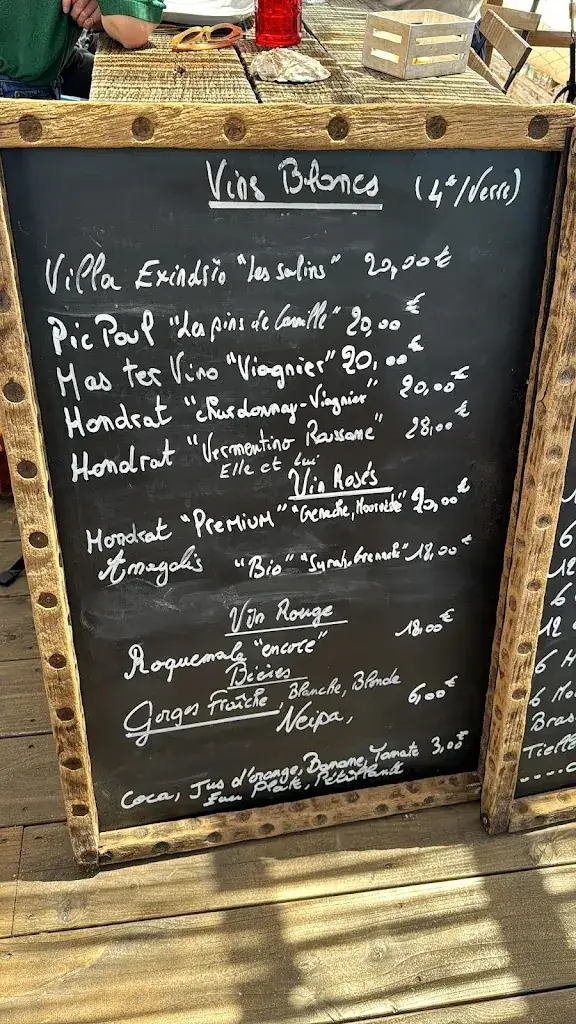 Vins Blancs (4€/Verre)
Villa Exindrio "Les salins" 20,00€
Pic Poul "Les pins de Camille" 20,00€
Mas ter Vino "Viognier" 20,00€
Hondrat "Chardonnay-Viognier" 20,00€
Hondrat "Vermentino Roussane" 28,00€
Elle et lui
Vin Rosés
Hondrat "PREMIUM" "Grenache, Mourvèdre" 20,00€
Amegalis "Bio" "Syrah, Grenache" 18,00€
Vin Rouge
Roquemale "encore" 18,00€
Bières
Gorges Fraîche Blanche, Blonde 6,00€
Neipa,
Coca, Jus d'orange, Banane, Tomate 3,00€
Eau Plate, Pétillante
6
12
6
12
6 H
6 Mo
Bras
Tielle